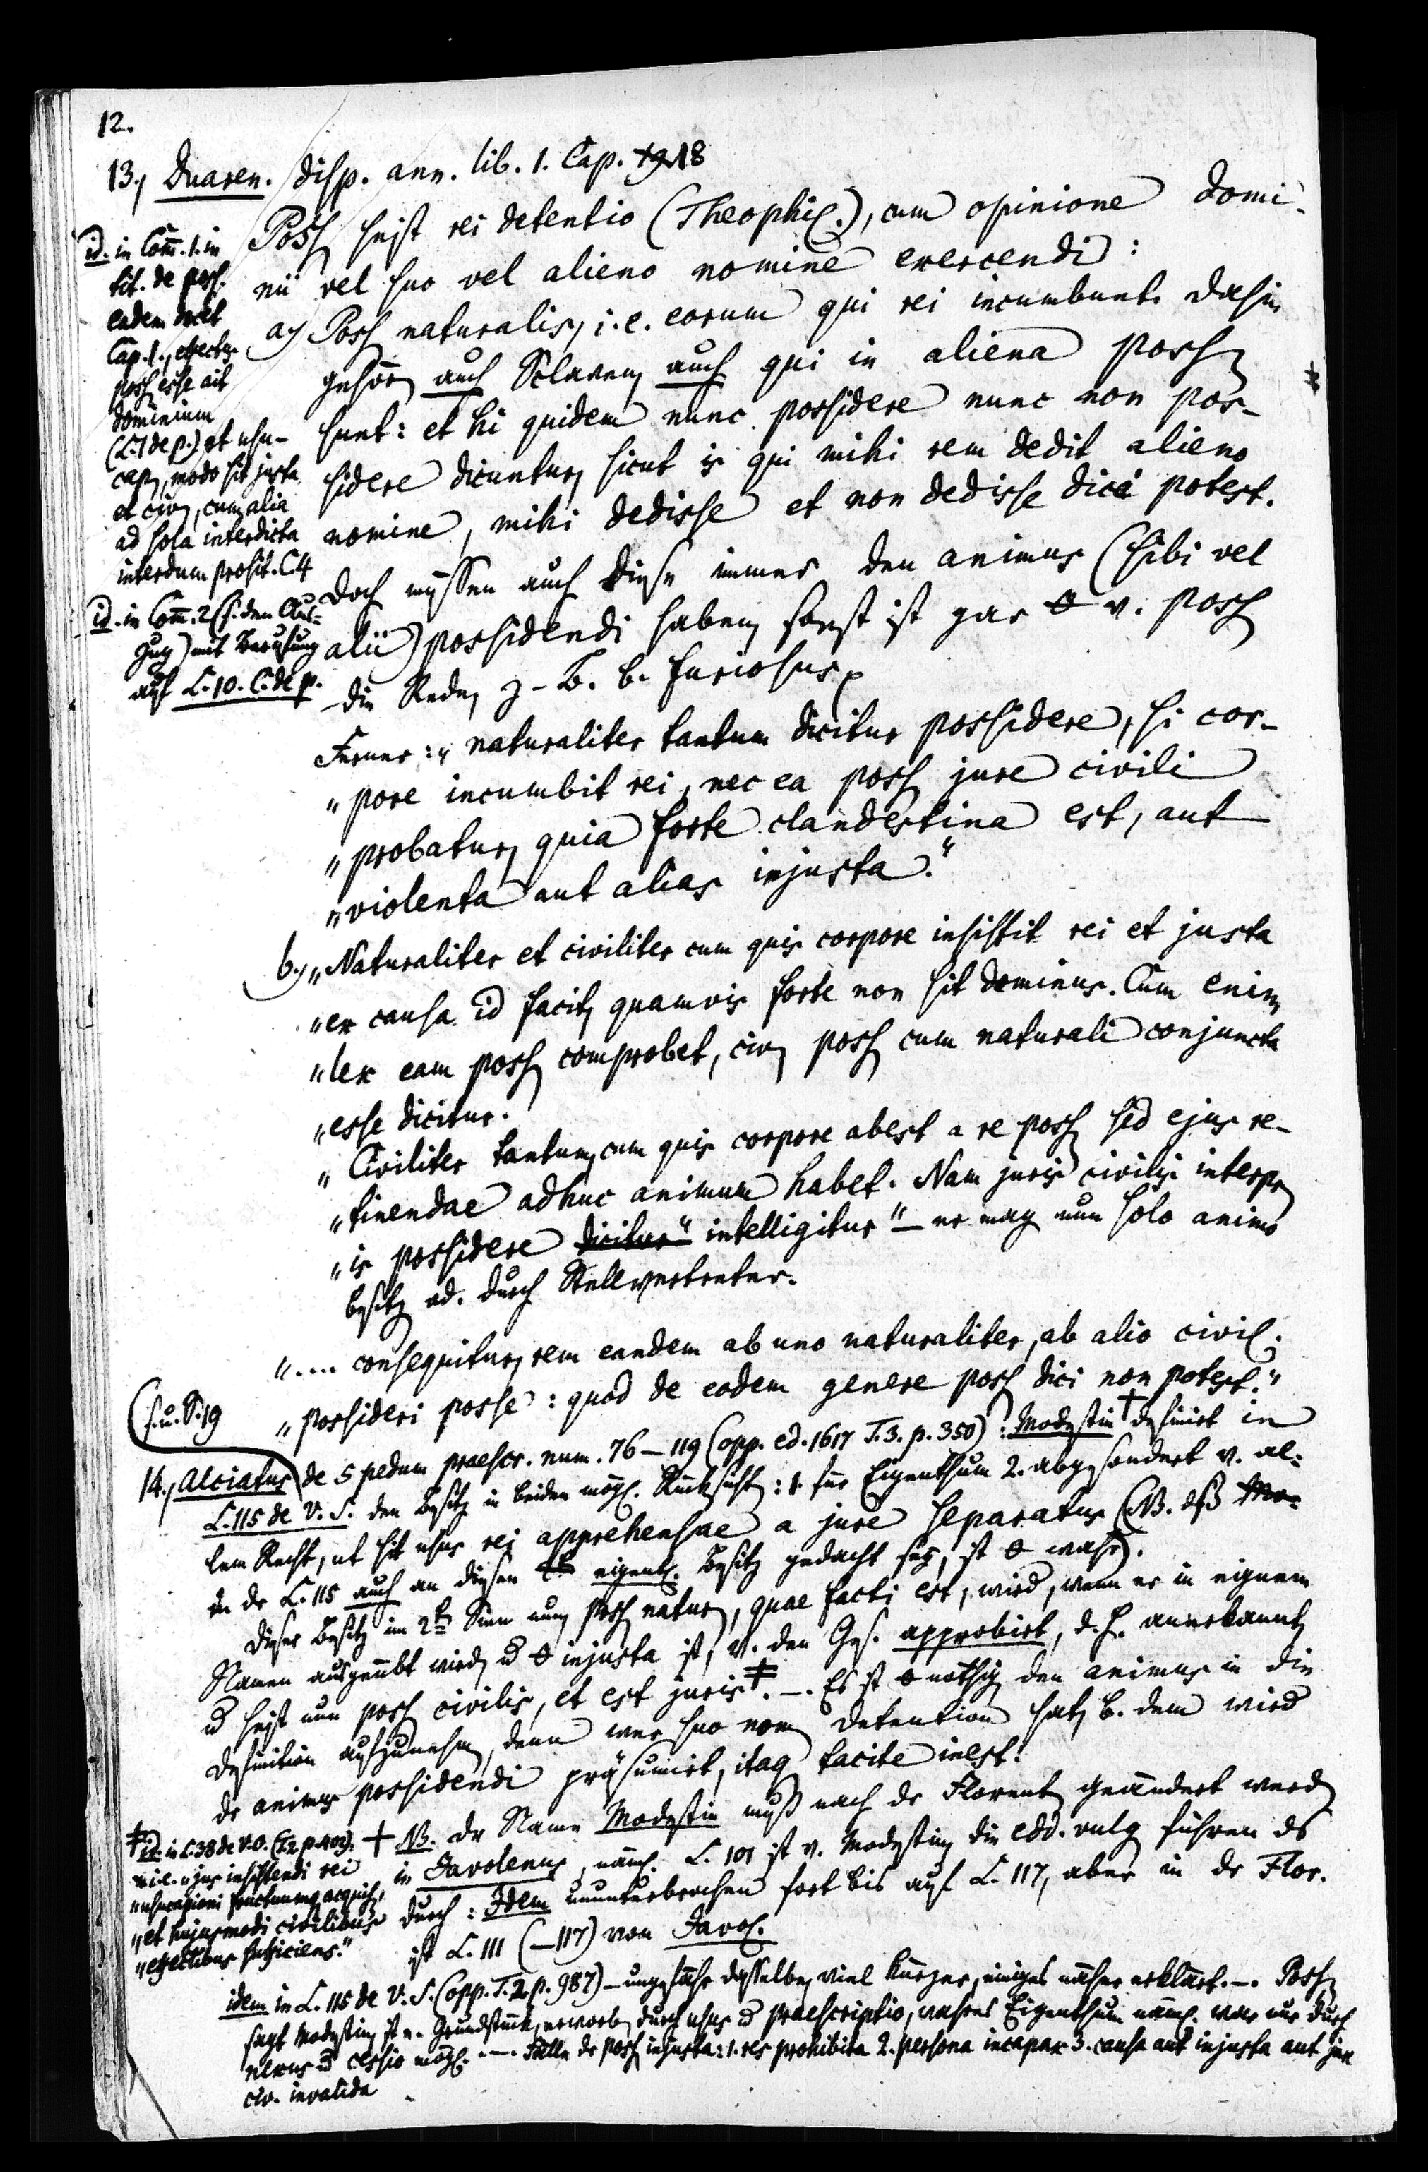 12.
13., Duaren. disp. ann. lib. 1. Cap. 18
Poss heist rei detentio (Theophil.), cum opinione domi-
nii vel suo vel alieno nomine exercendi:
a, Poss naturalis, i.e. eorum qui rei incumbunt. Dahin
gehören auch Sclaven, auch qui in aliena poss
sunt: et hi quidem nunc possidere nunc non pos-
sidere dicuntur, sicut is qui mihi rem dedit alieno
nomine, mihi dedisse et non dedisse dici potest.
Doch müssen auch diese immer den animus (sibi vel
alii) possidendi haben, sonst ist gar θ v. poss
die Rede, z. B. b. furiosus.
Ferner: „naturaliter tantum dicitur possidere, si cor-
„pore incumbit rei, nec ea poss jure civili
„probatur, quia forte clandestina est, aut
„violenta aut alias injusta."
b., „Naturaliter et civiliter cum quis corpore insistit rei et justa
„ex causa id facit, quamvis forte non sit dominus. Cum enim
„lex eam poss comprobet, civ poss cum naturali conjuncta
„esse dicitur.
„Civiliter tantum, cum quis corpore abest a re poss sed ejus re-
„tinendae adhuc animum habet. Nam juris civilis interpr
„is possidere dicitur" intelligitur" – er mag nun solo animo
besitzen od. durch Stellvertreter.
„.... consequitur, rem eandem ab uno naturaliter, ab alio civil.
„possideri posse: quod de eodem genere poss dici non potest."
id. in Com. 1. in
tit. de poss.
eadem docet
Cap. 1., effectus
poss esse ait
dominium
(L. 1 de p.) et usu-
cap, modo sit justa
et civ, cum alia
ad sola interdicta
interdum prosit. C. 4
id. in Com. 2 (s. den Aus-
zug) mit Berufung
auf L. 10. C. de p.
s. u. S. 19
14., Alciatus de 5 pedum praescr. num. 76–119 (opp. ed. 1617 T. 3. p. 350): Modestin † definirt in
L. 115 de V. S. den Besitz in beiden mögl. Rücksichten: 1. für Eigenthum 2. abgesondert v. al-
lem Recht, ut sit usus rei apprehensae a jure separatus (NB. dß Mo-
in der L. 115 auch an diesen eigentl. Besitz gedacht sey, ist θ wahr).
Dieser Besitz im 2t Sinn nun, poss natur, quae facti est, wird, wenn er in eignem
Namen ausgeübt wird, u θ injusta ist, v. den Ges. approbirt, d. h. anerkannt,
u heist nun poss civilis, et est juris ‡. –. Es ist θ nöthig den animus in die
Definition aufzunehmen, denn wer suo nom Detention hat, b. dem wird
der animus possidendi präsumirt, itaq tacite inest.
† NB. der Name Modestin muß nach der Florent geändert werden
in Javolenus, näml. L. 101 ist v. Modestin, die edd. vulg führen ds
durch: Idem ununterbrochen fort bis auf L. 117, aber in der Flor.
ist L. 111 (–117) von Javol.
‡ id. in L. 38 de V.O.
„i.e. „jus insistendi rei
„usucapioni fructuumq acquir,
„et hujusmodi civilibus
„effectibus sufficiens."
idem in L. 115 de V. S. (opp. T. 2. p. 987) – ungefähr dasselbe, viel kürzer, einiges näher erklärt. –. Poss,
sagt Modestin, ist v. Grundstück, erworben durch usus u praescriptio, wahres Eigenthum näml. war nur durch
nexus u cessio mögl. –. Fälle der poss injusta: 1. res prohibita 2. persona incapax 3. causa aut injusta aut jure
civ. invalida